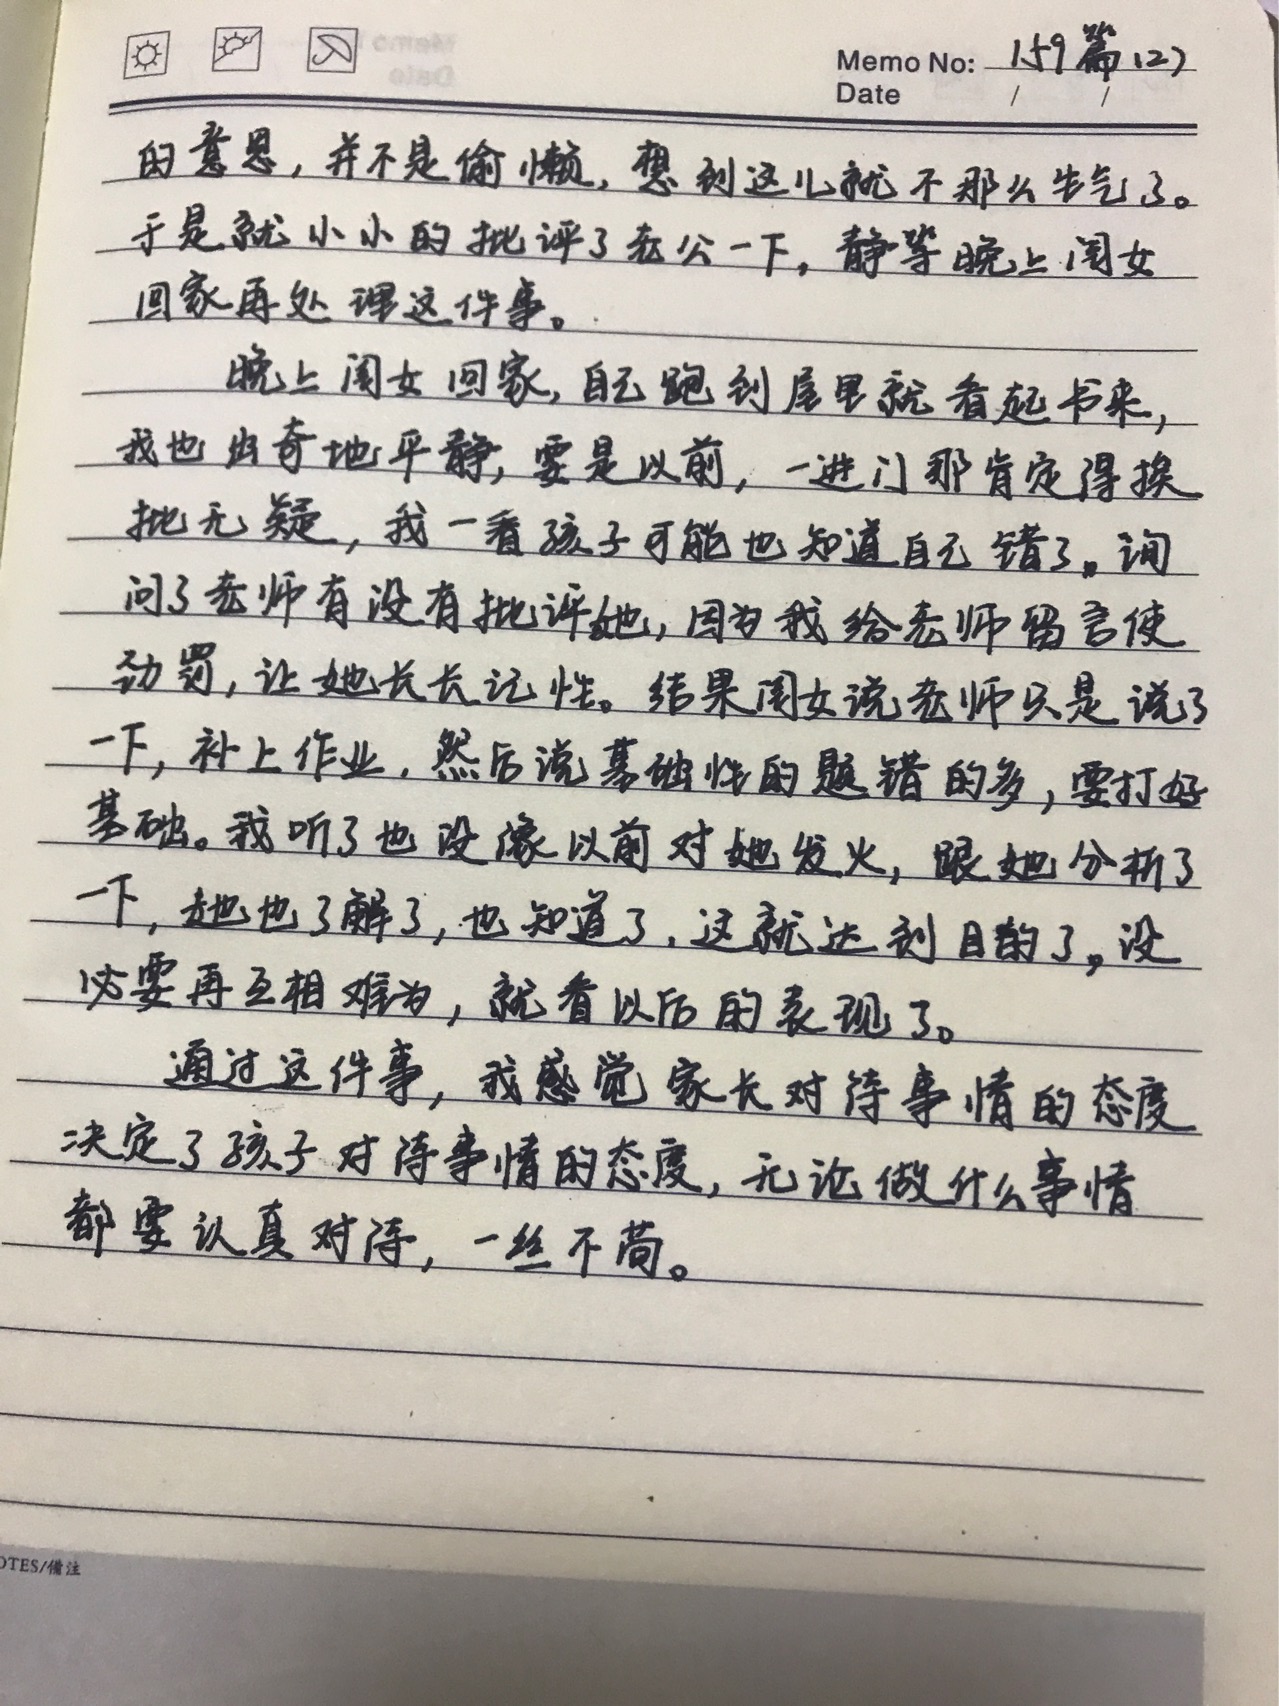 Memo No: 159篇(2)
Date / /
的意思，并不是偷懒，想到这儿就不那么生气了。
于是就小小的批评了老公一下，静等晚上闺女
回家再处理这件事。
晚上闺女回家，自己跑到屋里就看起书来，
我也出奇地平静，要是以前，一进门那肯定得挨
批无疑，我一看孩子可能也知道自己错了。询
问了老师有没有批评她，因为我给老师留言使
劲罚，让她长长记性。结果闺女说老师只是说了
一下，补上作业，然后说基础性的题错的多，要打好
基础。我听了也没像以前对她发火，跟她分析了
一下，她也了解了，也知道了，这就达到目的了。没
必要再互相难为，就看以后的表现了。
通过这件事，我感觉家长对待事情的态度
决定了孩子对待事情的态度，无论做什么事情
都要认真对待，一丝不苟。
OTES/備注